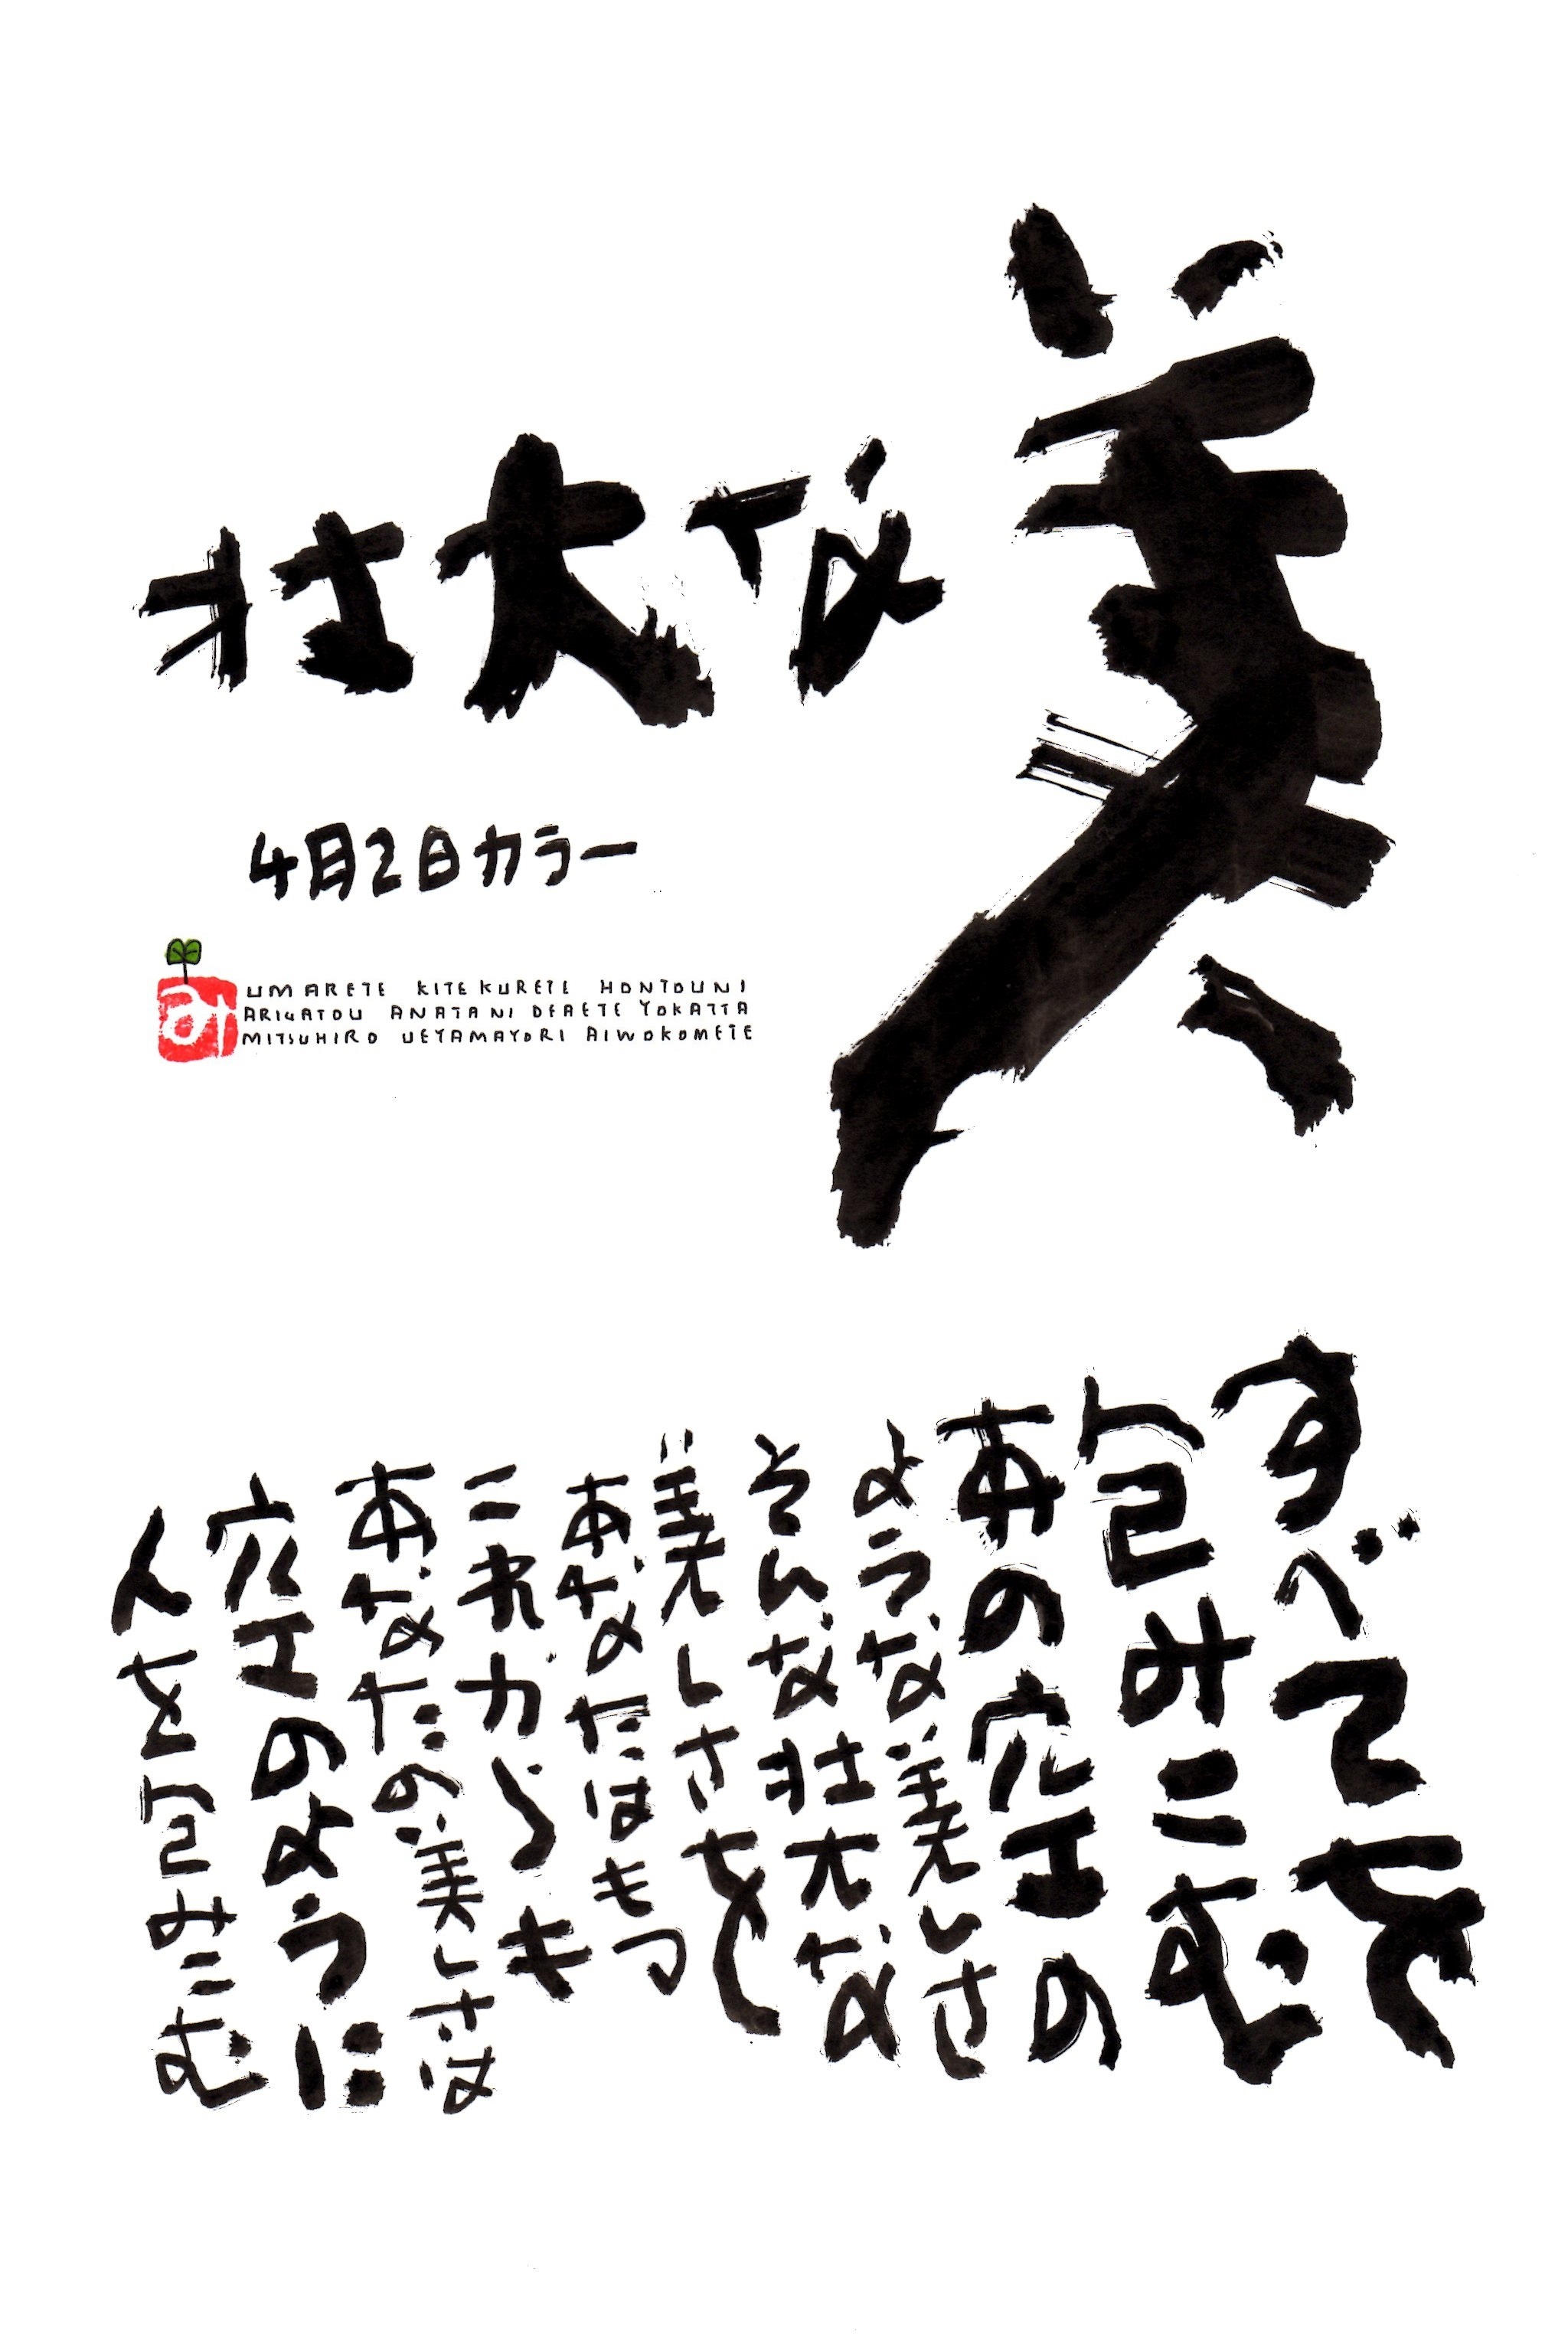 壮大な
美
4月2日カラー
み
UMARETE KITEKURETE HONTOUNI
ARIGATOU ANATANI DEAETE YOKATTA
MITSUHIRO UEYAMAYORI AIWOKOMETE
すべてを
包みこむ
あの空の
ような美しさ
そんな壮大な
美しさを
あなたはもつ
これからも
あなたの美しさは
空のように
人を包みこむ